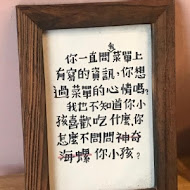 你一直問菜單上
有寫的資訊,你想
過菜單的心情嗎?
我也不知道你小
孩喜歡吃什麼,你
怎麼不問問神奇
海螺 你小孩?